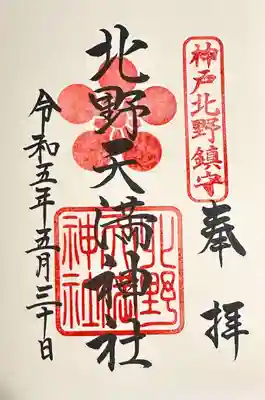 神戸北野鎮守
奉拝
北野天満神社
北野天満神社
令和五年五月三十日